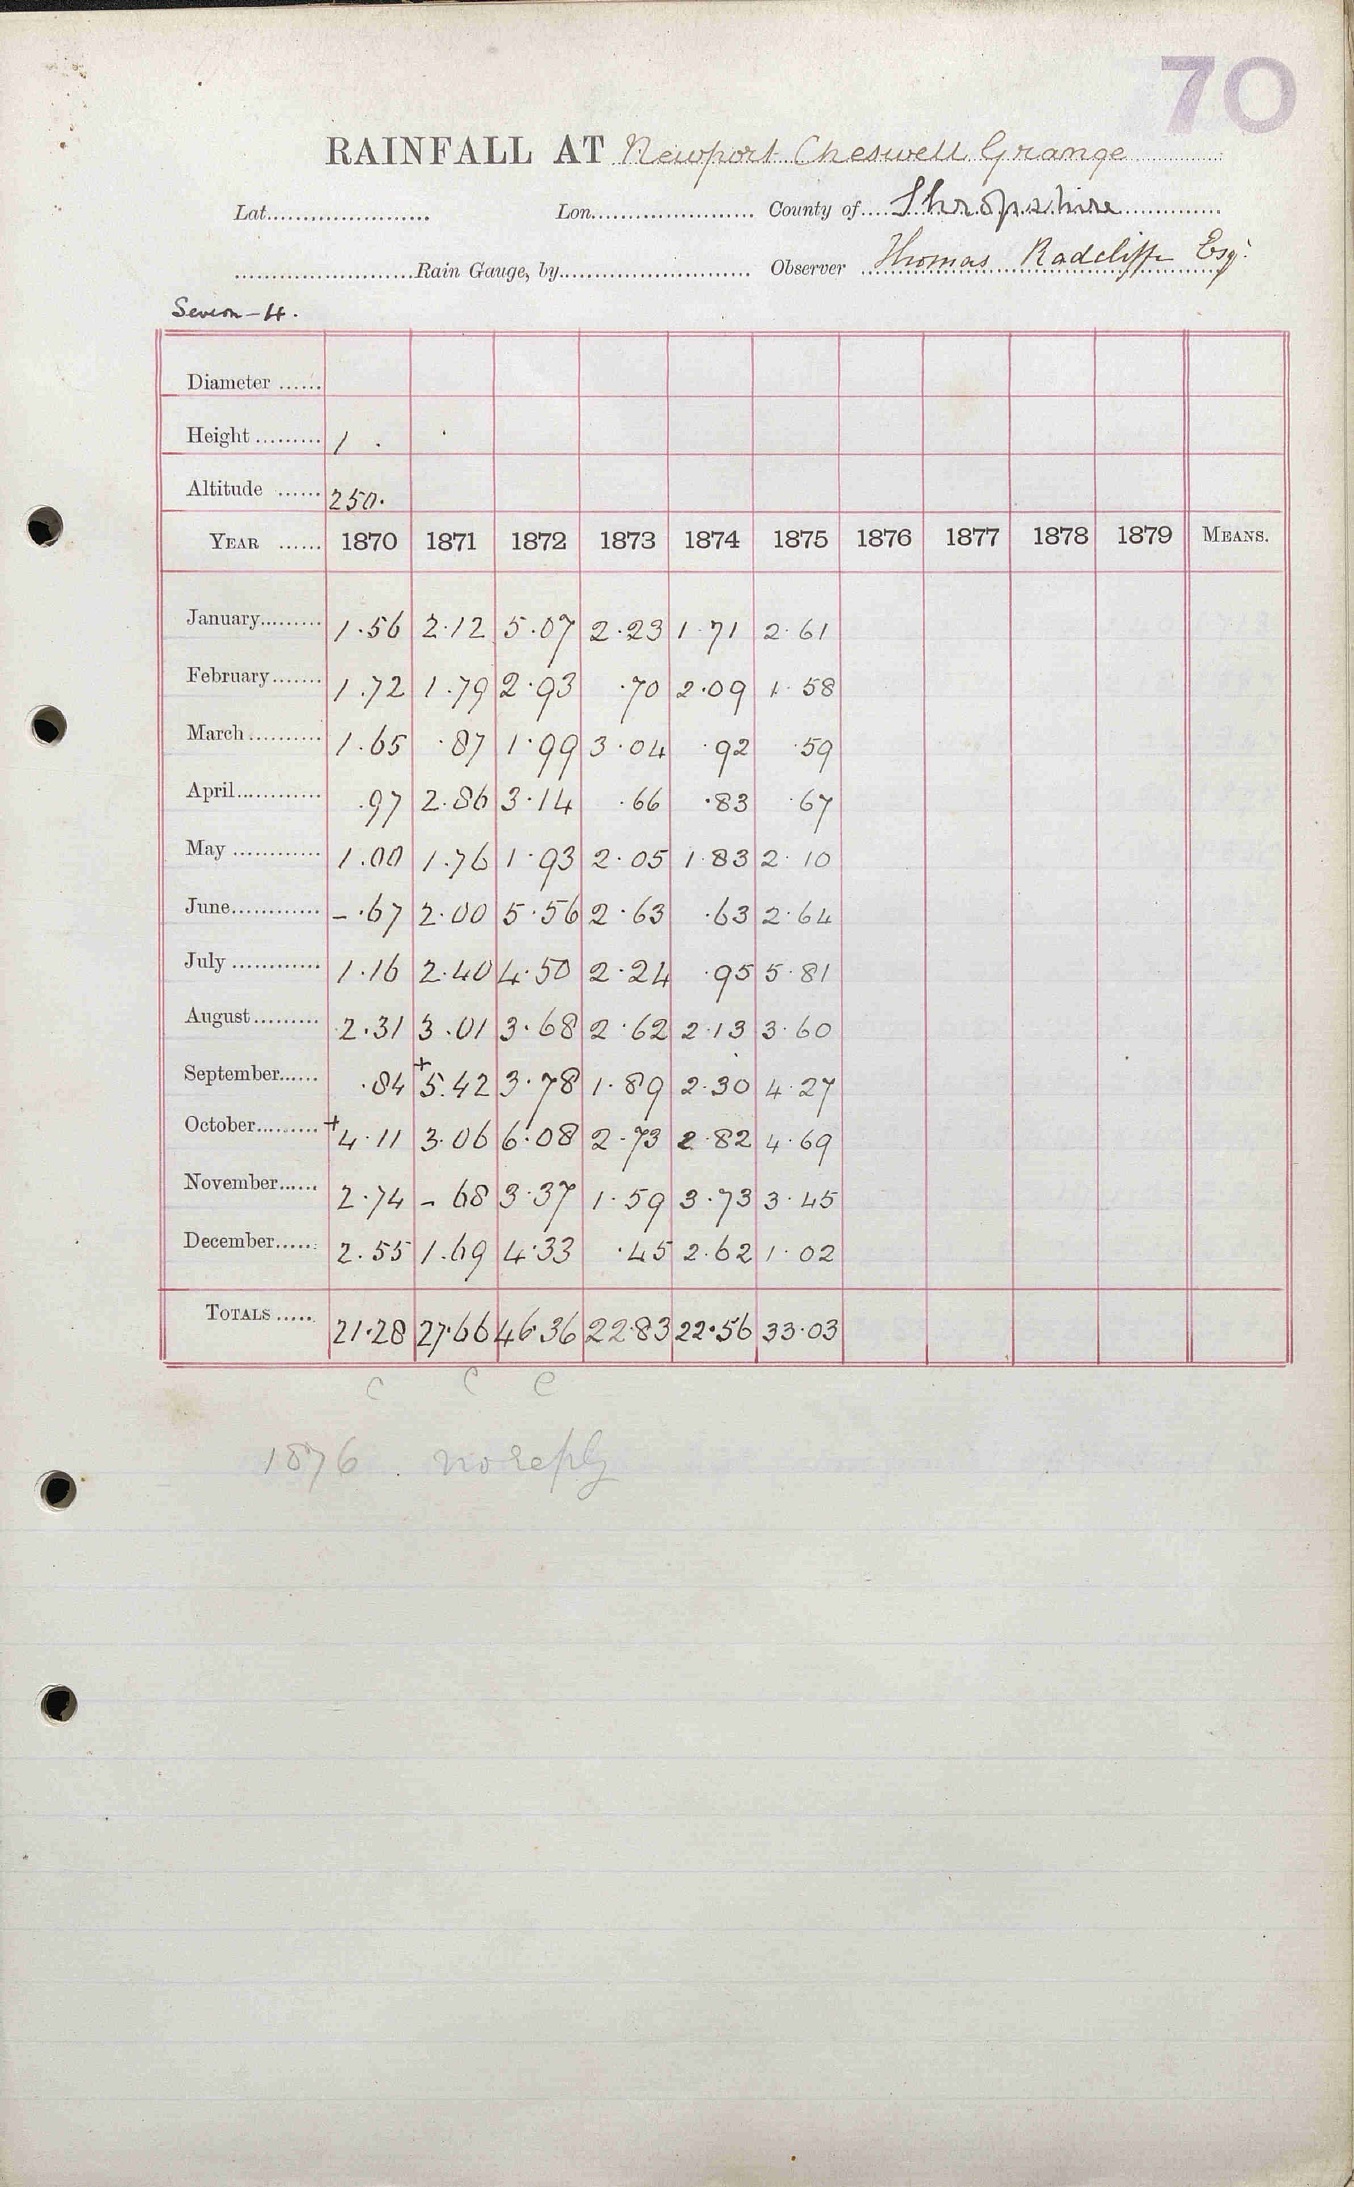 70
RAINFALL AT Newport Cheswell Grange
Lat...................... Lon...................... County of.... Shropshire
.........................Rain Gauge, by........................... Observer Thomas Radcliffe Esq.
Severn – 4.
Diameter ......
Height ......... 1 .
Altitude ...... 250.
YEAR ...... 1870 1871 1872 1873 1874 1875 1876 1877 1878 1879 MEANS.
January......... 1.56 2.12 5.07 2.23 1.71 2.61
February....... 1.72 1.79 2.93 .70 2.09 1.58
March .......... 1.65 .87 1.99 3.04 .92 .59
April............ .97 2.86 3.14 .66 .83 .67
May ............ 1.00 1.76 1.93 2.05 1.83 2.10
June............ – .67 2.00 5.56 2.63 .63 2.64
July ............ 1.16 2.40 4.50 2.24 .95 5.81
August......... 2.31 3.01 3.68 2.62 2.13 3.60
September...... .84 +5.42 3.78 1.89 2.30 4.27
October......... +4.11 3.06 6.08 2.73 2.82 4.69
November...... 2.74 – 68 3.37 1.59 3.73 3.45
December...... 2.55 1.69 4.33 .45 2.62 1.02
TOTALS ..... 21.28 27.66 46.36 22.83 22.56 33.03
C C C
1876 . no reply